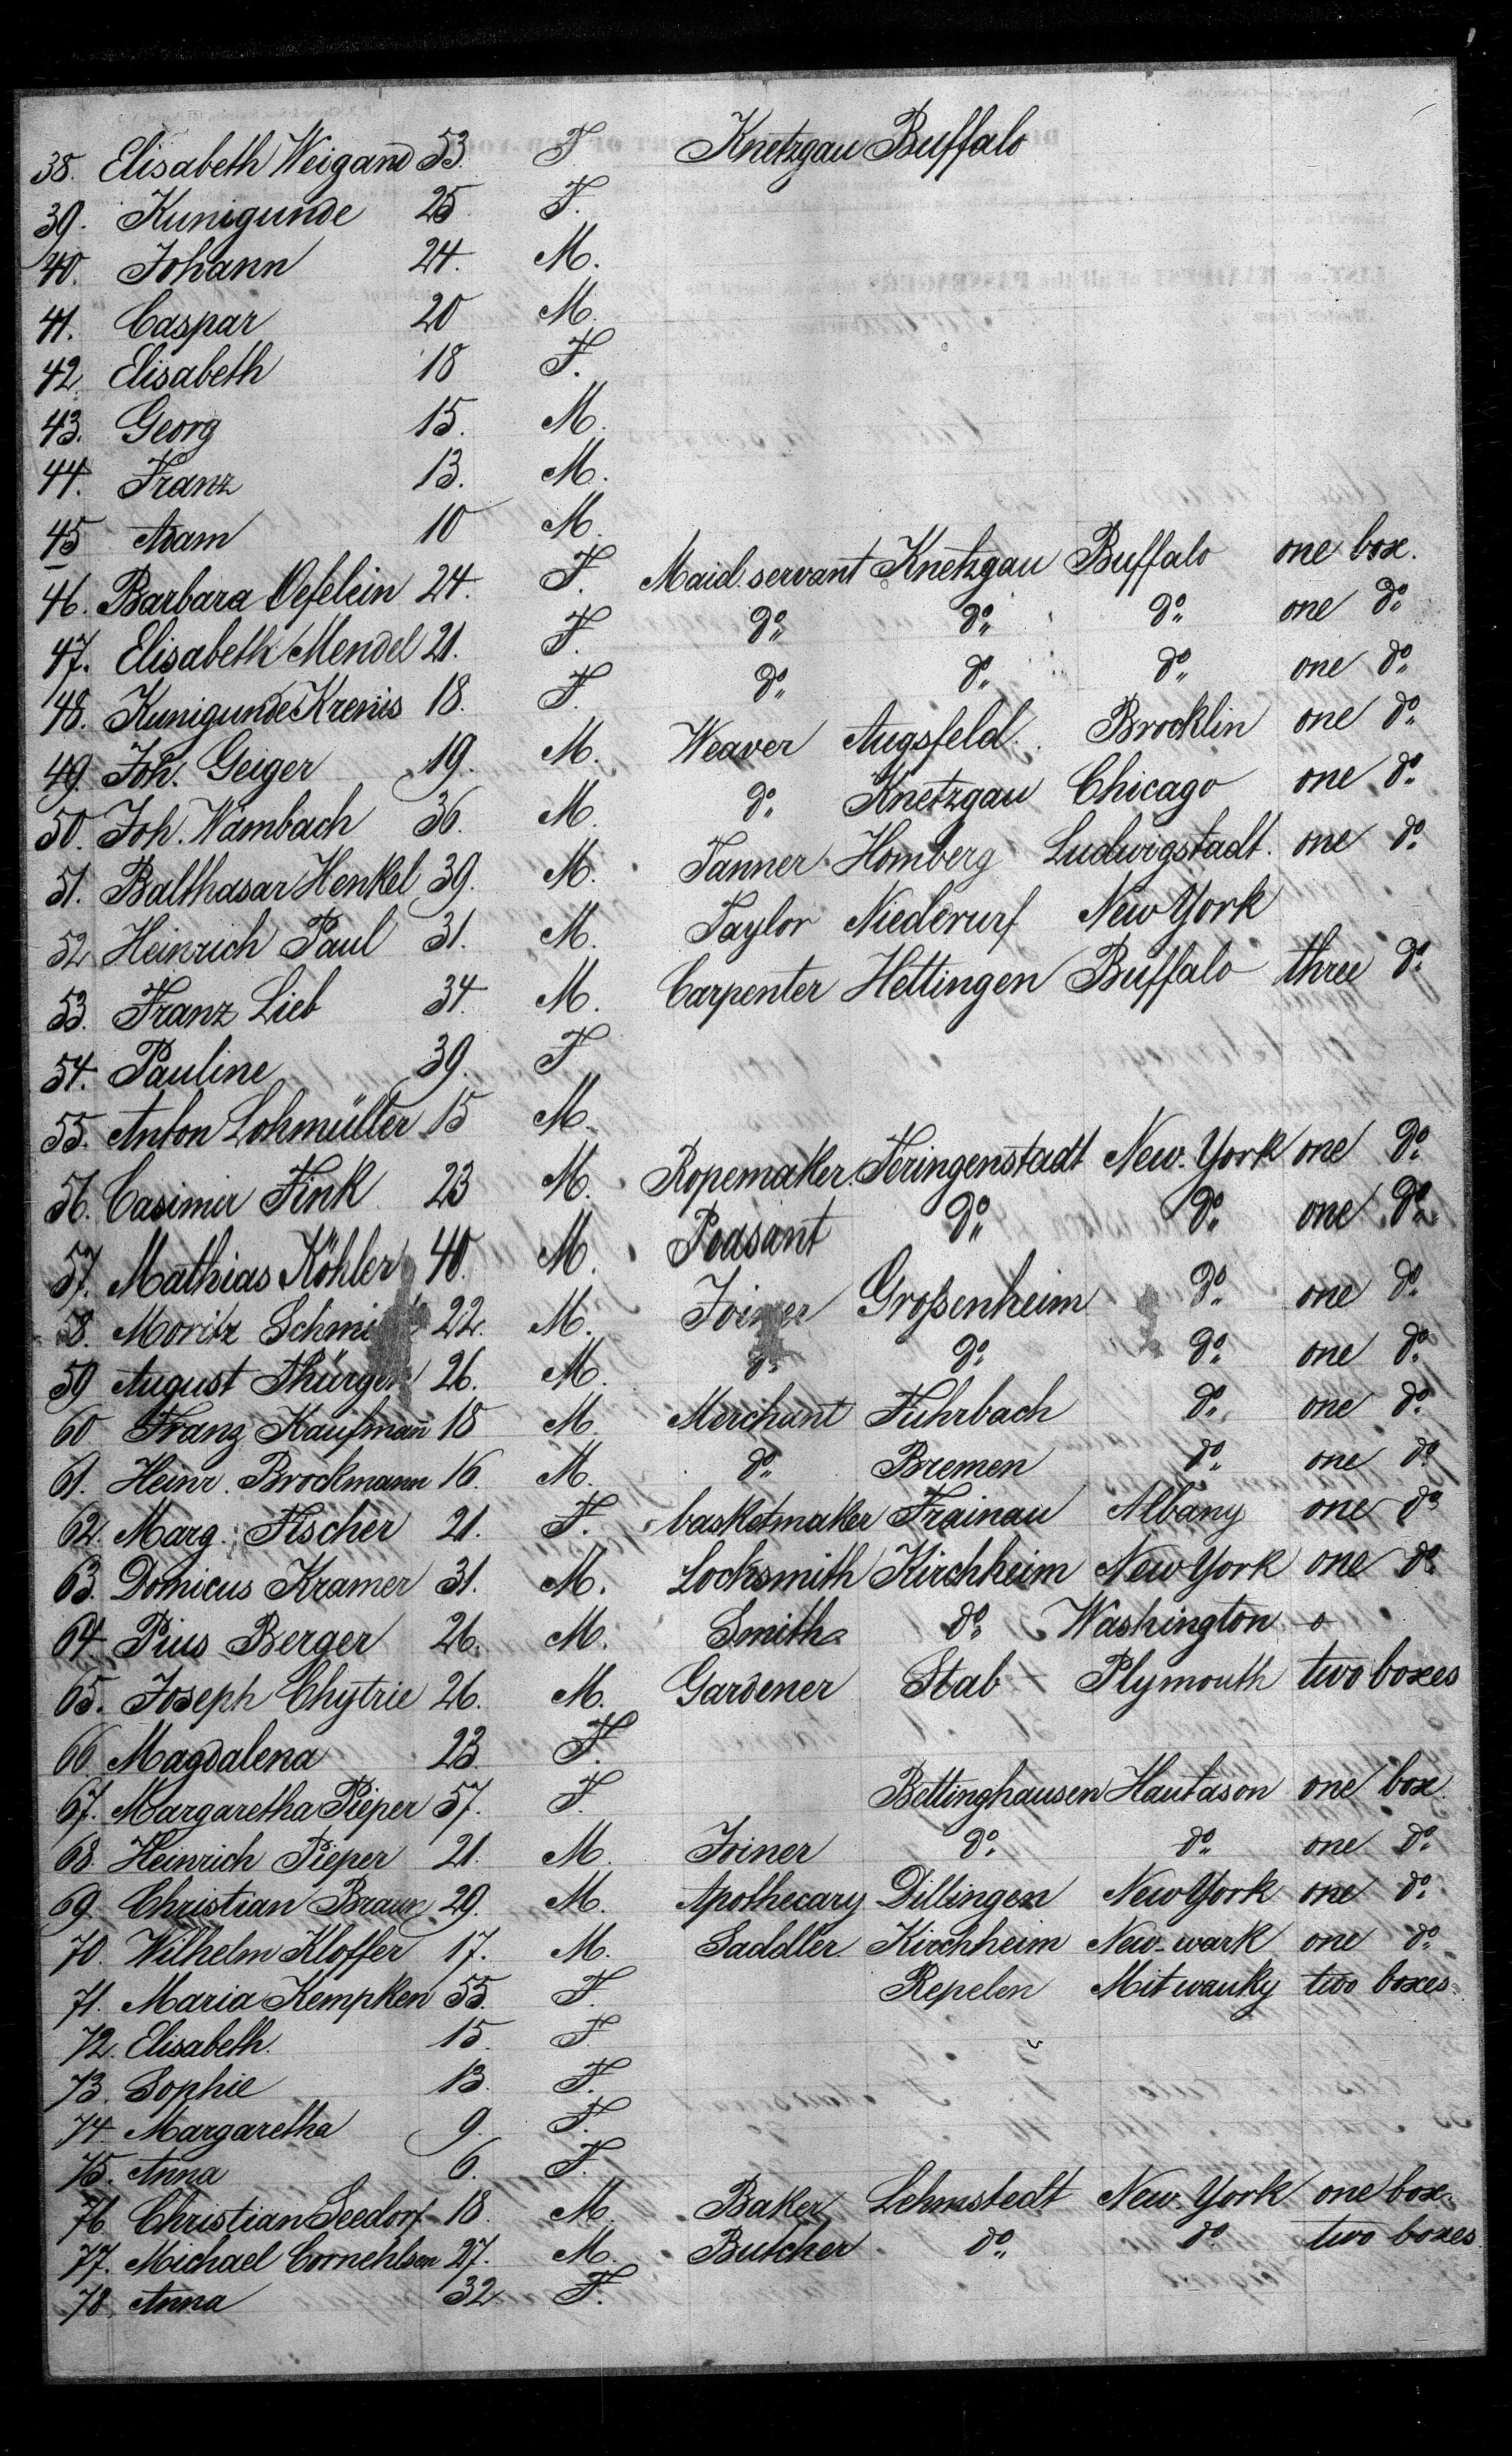 38. Elisabeth Weigand 53. F. Knetzgau Buffalo
39. Kunigunde 25 F.
40. Johann 24. M.
41. Caspar 20 M.
42. Elisabeth 18 F.
43. Georg 15. M.
44. Franz 13. M.
45 Adam 10 M.
46. Barbara Oefelein 24. F. Maid servant Knetzgau Buffalo one box.
47. Elisabeth Mendel 21. F. do do do one do
48. Kunigunde Krenis 18. F. do do do one do
49. Joh. Geiger 19. M. Weaver Augsfeld. Brocklin one do
50. Joh. Wambach 36. M. do Knetzgau Chicago one do
51. Balthasar Henkel 39. M. Tanner Homberg Ludwigstadt. one do
52 Heinrich Paul 31. M. Taylor Niederurf New York
53. Franz Lieb 34 M. Carpenter Hettingen Buffalo three do
54. Pauline 39. F
55. Anton Lohmüller 15 M.
56. Casimir Fink 23 M. Ropemaker Feringenstadt New-York one do
57. Mathias Köhler 40. M. Peasant do do one do
58. Moritz 22. M. Joiner Großenheim do one do
59 August Thürgen 26. M. do do do one do
60 Franz Kaufmañ 18 M. Merchant Fuhrbach do one do
61. Heinr. Brockmann 16. M. do Bremen do one do
62. Marg. Fischer 21. F. basketmaker Trainau Albany one do
63. Domicus Kramer 31. M. Locksmith Kirchheim New York one do
64. Pius Berger 26. M. Smith do Washington o
65. Joseph Chytrie 26. M. Gardener Stab Plymouth two boxes
66. Magdalena 23. F.
67. Margaretha Pieper 57. F. Bettinghausen Hautason one box.
68. Heinrich Pieper 21. M. Joiner do do one do
69. Christian Braun 29. M. Apothecary Dillingen New York one do
70. Wilhelm Kloffer 17. M. Saddler Kirchheim New-wark one do
71. Maria Kempken 55. F. Repelen Mitwauky two boxes
72. Elisabeth. 15. F.
73. Sophie 13. F.
74. Margaretha 9. F.
75. Anna 6. F.
76. Christian Seedorf 18. M. Baker Lehmstedt New-York one box.
77. Michael Cornehlsen 27. M. Butcher do do two boxes
78. Anna 32 F.